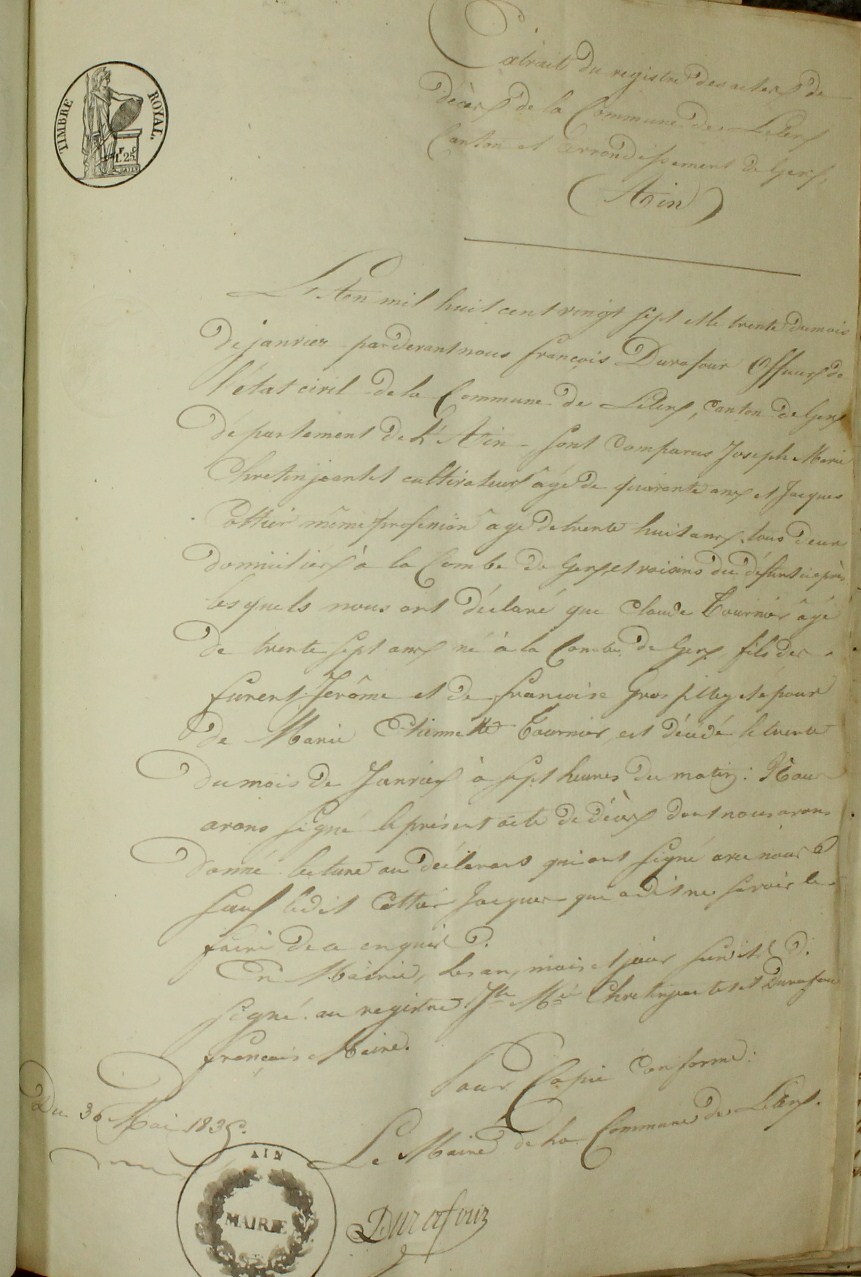 TIMBRE ROYAL.
1F 25c
Extrait du registre des actes de
décès de la Commune de Lélex
Canton et arrondissement de Gex,
(Ain)
L'An mil huit cent vingt sept et le trente du mois
de janvier pardevant nous françois Durafour Officier de
l'état civil de la Commune de Lélex, canton de Gex
département de L'Ain sont comparus Joseph Marie
Chretinjeantet cultivateur âgé de quarante ans et Jacques
Cottier même profession âgé de trente huit ans, tous deux
domiciliés à la Combe de Gex et voisins du défunt
lesquels nous ont déclaré que Claude Tournier âgé
de trente sept ans né à la Combe de Gex fils de
furent Jérôme et de françoise Gros époux
de Marie Etiennette Tournier, est décédé le trente
du mois de Janvier à sept heures du matin: Nous
avons signé le présent acte de décès dont nous avons
donné lecture au déclarans qui ont signé avec nous
sauf ledit Cottier Jacques qui a dit ne savoir le
faire de ce enquis
En Mairie, les an, mois et jour susdits
signé au registre Jh Mie Chretinjeantet et Durafour
françois Maire.
Pour Copie conforme:
Du 30 Mai 1835.
Le Maire de la Commune de Lélex.
AIN
MAIRIE
Durafour